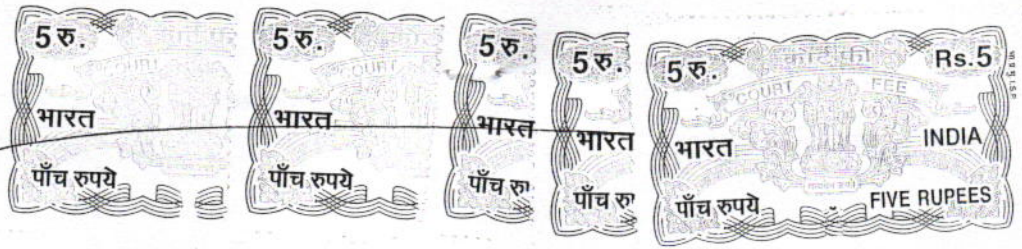 5 रु.
COURT
भारत
पाँच रुपये
5 रु.
COURT
भारत
पाँच रुपये
5 रु.
भारत
पाँच रु
5 रु.
भारत
पाँच रु
5 रु. कोर्ट फी Rs.5
COURT FEE
भारत INDIA
पाँच रुपये FIVE RUPEES